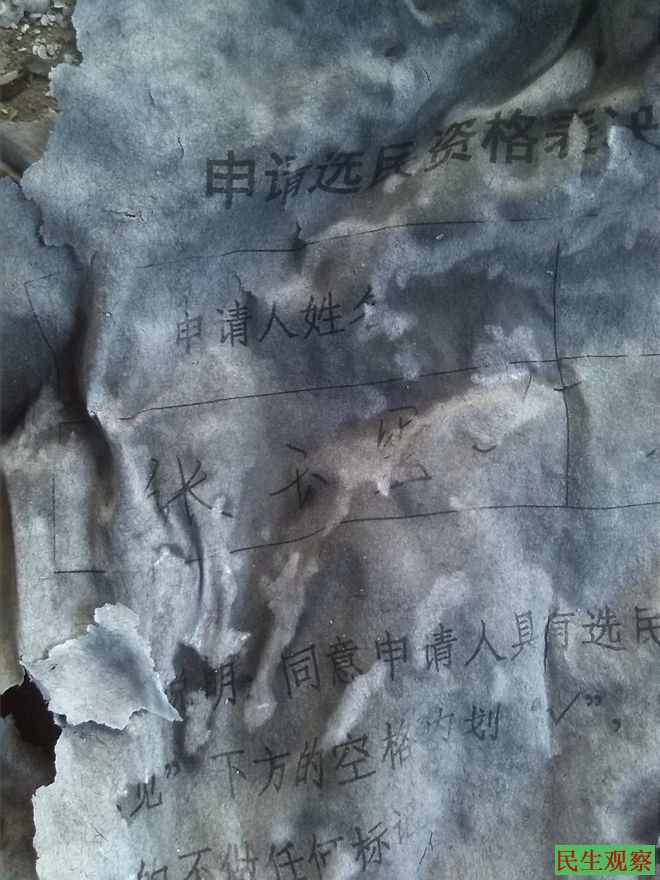 申请选民资格表决
申请人姓名
张玉
说明：同意申请人具有选民
见”下方的空格内划“√”，
的不做任何标记
民生观察